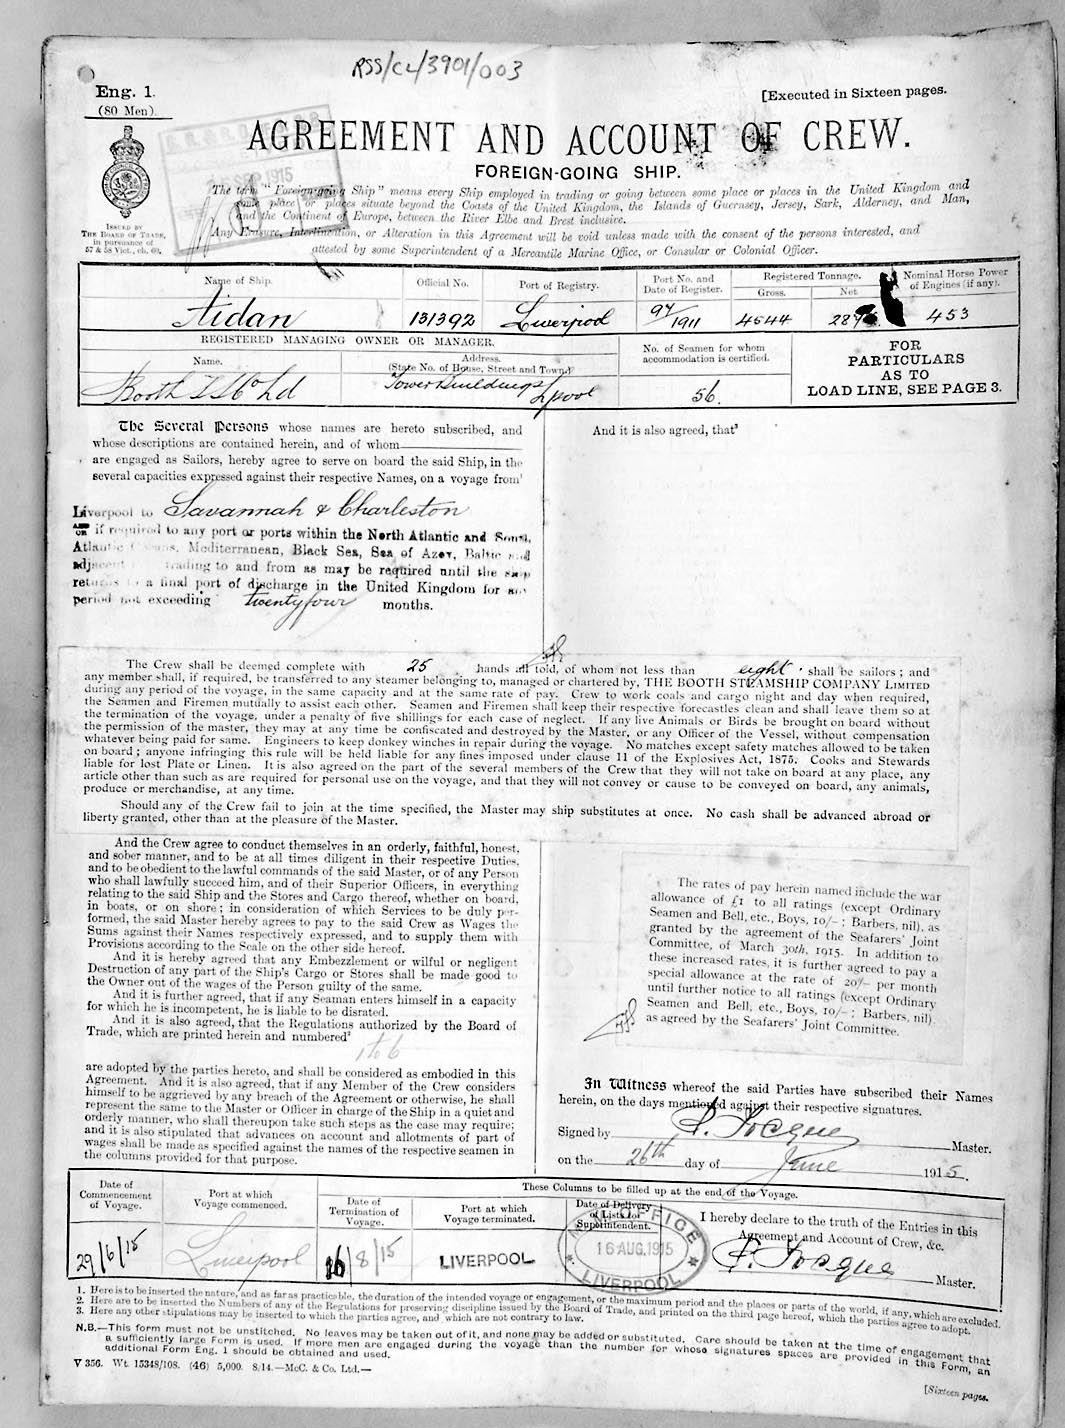 RSS/CL/3901/003
Eng. 1.
(80 Men).
[Executed in Sixteen pages.
AGREEMENT AND ACCOUNT OF CREW.
FOREIGN-GOING SHIP.
SEP 1915
ISSUED BY
THE BOARD OF TRADE,
in pursuance of
57 & 58 Vict., ch. 60.
The term "Foreign-going Ship" means every Ship employed in trading or going between some place or places in the United Kingdom and
some place or places situate beyond the Coasts of the United Kingdom, the Islands of Guernsey, Jersey, Sark, Alderney, and Man,
and the Continent of Europe, between the River Elbe and Brest inclusive.
Any Erasure, Interlineation, or Alteration in this Agreement will be void unless made with the consent of the persons interested, and
attested by some Superintendent of a Mercantile Marine Office, or Consular or Colonial Officer.
Name of Ship.
Official No.
Port of Registry.
Port No. and
Date of Register.
Registered Tonnage.
Gross.
Net
Nominal Horse Power
of Engines (if any).
Aidan
131392
Liverpool
97/1911
4544
453
REGISTERED MANAGING OWNER OR MANAGER.
Name.
Address.
(State No. of House, Street and Town.)
No. of Seamen for whom
accommodation is certified.
FOR
PARTICULARS
AS TO
LOAD LINE, SEE PAGE 3.
Booth SS Co Ld
Tower Buildings
L'pool
56.
The Several Persons whose names are hereto subscribed, and
whose descriptions are contained herein, and of whom
are engaged as Sailors, hereby agree to serve on board the said Ship, in the
several capacities expressed against their respective Names, on a voyage from¹
And it is also agreed, that³
Liverpool to Savannah & Charleston
AND/OR if required to any port or ports within the North Atlantic and South
Atlantic Oceans, Mediterranean, Black Sea, Sea of Azov, Baltic and
adjacent trading to and from as may be required until the ship
returns to a final port of discharge in the United Kingdom for any
period not exceeding twenty four months.
The Crew shall be deemed complete with 25 hands all told, of whom not less than eight shall be sailors; and
any member shall, if required, be transferred to any steamer belonging to, managed or chartered by, THE BOOTH STEAMSHIP COMPANY LIMITED
during any period of the voyage, in the same capacity and at the same rate of pay. Crew to work coals and cargo night and day when required,
the Seamen and Firemen mutually to assist each other. Seamen and Firemen shall keep their respective forecastles clean and shall leave them so at
the termination of the voyage, under a penalty of five shillings for each case of neglect. If any live Animals or Birds be brought on board without
the permission of the master, they may at any time be confiscated and destroyed by the Master, or any Officer of the Vessel, without compensation
whatever being paid for same. Engineers to keep donkey winches in repair during the voyage. No matches except safety matches allowed to be taken
on board; anyone infringing this rule will be held liable for any fines imposed under clause 11 of the Explosives Act, 1875. Cooks and Stewards
liable for lost Plate or Linen. It is also agreed on the part of the several members of the Crew that they will not take on board at any place, any
article other than such as are required for personal use on the voyage, and that they will not convey or cause to be conveyed on board, any animals,
produce or merchandise, at any time.
Should any of the Crew fail to join at the time specified, the Master may ship substitutes at once. No cash shall be advanced abroad or
liberty granted, other than at the pleasure of the Master.
And the Crew agree to conduct themselves in an orderly, faithful, honest,
and sober manner, and to be at all times diligent in their respective Duties,
and to be obedient to the lawful commands of the said Master, or of any Person
who shall lawfully succeed him, and of their Superior Officers, in everything
relating to the said Ship and the Stores and Cargo thereof, whether on board,
in boats, or on shore; in consideration of which Services to be duly per-
formed, the said Master hereby agrees to pay to the said Crew as Wages the
Sums against their Names respectively expressed, and to supply them with
Provisions according to the Scale on the other side hereof.
And it is hereby agreed that any Embezzlement or wilful or negligent
Destruction of any part of the Ship's Cargo or Stores shall be made good to
the Owner out of the wages of the Person guilty of the same.
And it is further agreed, that if any Seaman enters himself in a capacity
for which he is incompetent, he is liable to be disrated.
And it is also agreed, that the Regulations authorized by the Board of
Trade, which are printed herein and numbered²
1 to 6
are adopted by the parties hereto, and shall be considered as embodied in this
Agreement. And it is also agreed, that if any Member of the Crew considers
himself to be aggrieved by any breach of the Agreement or otherwise, he shall
represent the same to the Master or Officer in charge of the Ship in a quiet and
orderly manner, who shall thereupon take such steps as the case may require;
and it is also stipulated that advances on account and allotments of part of
wages shall be made as specified against the names of the respective seamen in
the columns provided for that purpose.
The rates of pay herein named include the war
allowance of £1 to all ratings (except Ordinary
Seamen and Bell, etc., Boys, 10/-; Barbers, nil), as
granted by the agreement of the Seafarers' Joint
Committee, of March 30th, 1915. In addition to
these increased rates, it is further agreed to pay a
special allowance at the rate of 20/- per month
until further notice to all ratings (except Ordinary
Seamen and Bell, etc., Boys, 10/-; Barbers, nil),
as agreed by the Seafarers' Joint Committee.
In Witness whereof the said Parties have subscribed their Names
herein, on the days mentioned against their respective signatures.
Signed by P. Tocque Master.
on the 26th day of June 1915.
These Columns to be filled up at the end of the Voyage.
Date of
Commencement
of Voyage.
Port at which
Voyage commenced.
Date of
Termination of
Voyage.
Port at which
Voyage terminated.
Date of Delivery
of Lists to
Superintendent.
I hereby declare to the truth of the Entries in this
Agreement and Account of Crew, &c.
29/6/15
Liverpool
16/8/15
LIVERPOOL
OFFICE
16 AUG. 1915
LIVERPOOL
P. Tocque Master.
1. Here is to be inserted the nature, and as far as practicable, the duration of the intended voyage or engagement, or the maximum period and the places or parts of the world, if any, which are excluded.
2. Here are to be inserted the Numbers of any of the Regulations for preserving discipline issued by the Board of Trade, and printed on the third page hereof, which the parties agree to adopt.
3. Here any other stipulations may be inserted to which the parties agree, and which are not contrary to law.
N.B.—This form must not be unstitched. No leaves may be taken out of it, and none may be added or substituted. Care should be taken at the time of engagement that
a sufficiently large Form is used. If more men are engaged during the voyage than the number for whose signatures spaces are provided in this Form, an
additional Form Eng. 1 should be obtained and used.
V 356. Wt. 15348/108. (46) 5,000. 8/14.—McC. & Co. Ltd.—
[Sixteen pages.